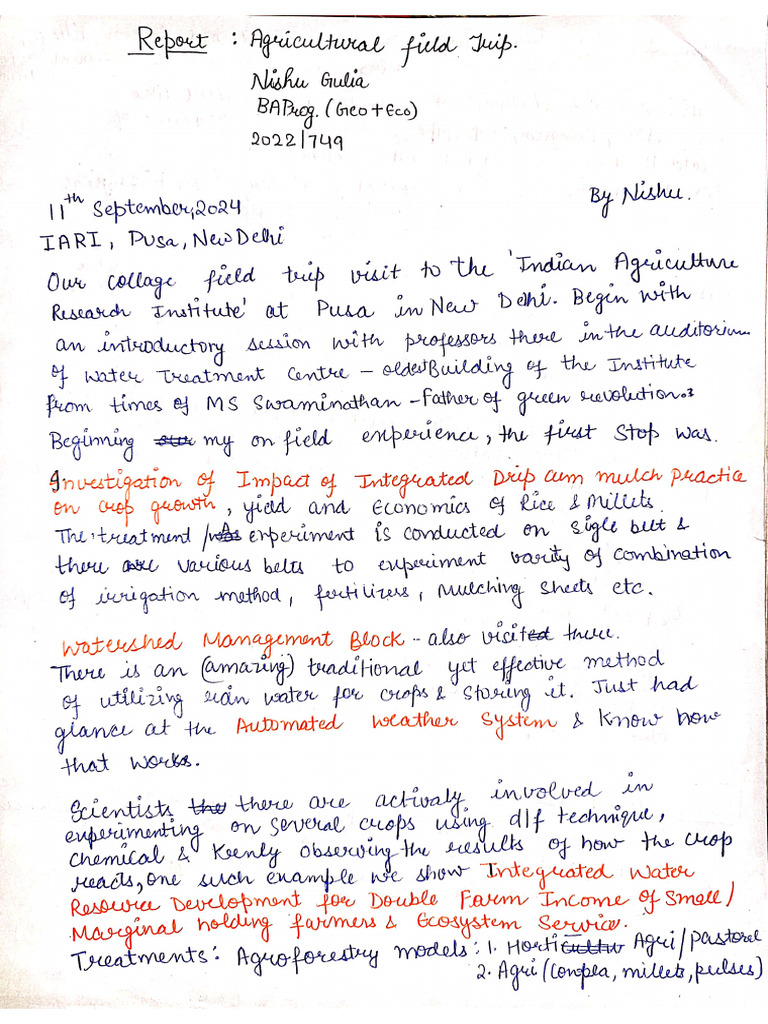 Report : Agricultural field Trip.
Nishu Gulia
BA Prog. (Geo + Eco)
2022/749
By Nishu.
11th September, 2024
IARI, Pusa, New Delhi
Our collage field trip visit to the 'Indian Agriculture
Research Institute' at Pusa in New Delhi. Begin with
an introductory session with professors there in the auditorium
of Water Treatment Centre – oldest Building of the Institute
from times of MS Swaminathan – Father of green revolution.
Beginning my on field experience, the first stop was.
Investigation of Impact of Integrated Drip cum mulch practice
on crop growth, yield and Economics of Rice & Millets.
The treatment / experiment is conducted on sigle belt &
there are various belts to experiment varity of combination
of irrigation method, fertilizers, mulching sheets etc.
Watershed Management Block – also visited there.
There is an (amazing) traditional yet effective method
of utilizing rain water for crops & storing it. Just had
glance at the Automated Weather System & know how
that works.
Scientists there are activaly involved in
experimenting on several crops using d/f technique,
chemical & keenly observing the results of how the crop
reacts, one such example we show Integrated Water
Resource Development for Double Farm Income of Small/
Marginal holding farmers & Ecosystem Service.
Treatments: Agroforestry models: 1. Horti Agri/Pastoral
2. Agri (Cowpea, millets, pulses)